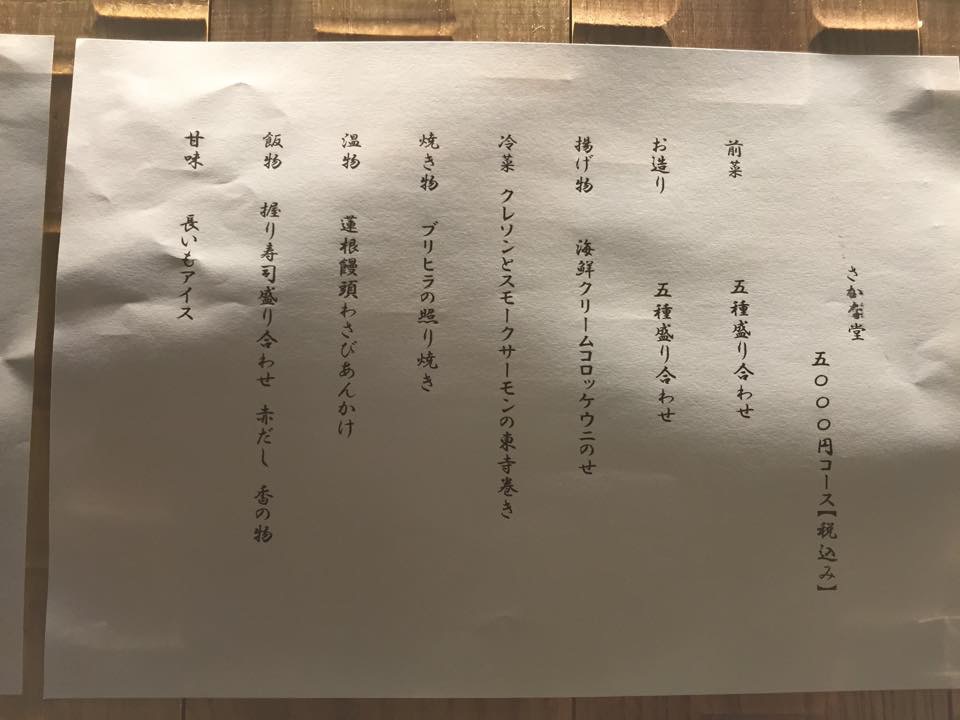 さかな堂
五〇〇〇円コース【税込み】
前菜 五種盛り合わせ
お造り 五種盛り合わせ
揚げ物 海鮮クリームコロッケウニのせ
冷菜 クレソンとスモークサーモンの東寺巻き
焼き物 ブリヒラの照り焼き
温物 蓮根饅頭わさびあんかけ
飯物 握り寿司盛り合わせ 赤だし 香の物
甘味 長いもアイス